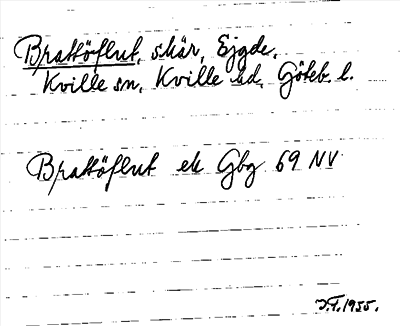 Brattöflut, skär, Ejgde,
Kville sn, Kville hd, Göteb. l.
Brattöflut ek Gbg 69 NV
J.T. 1955.